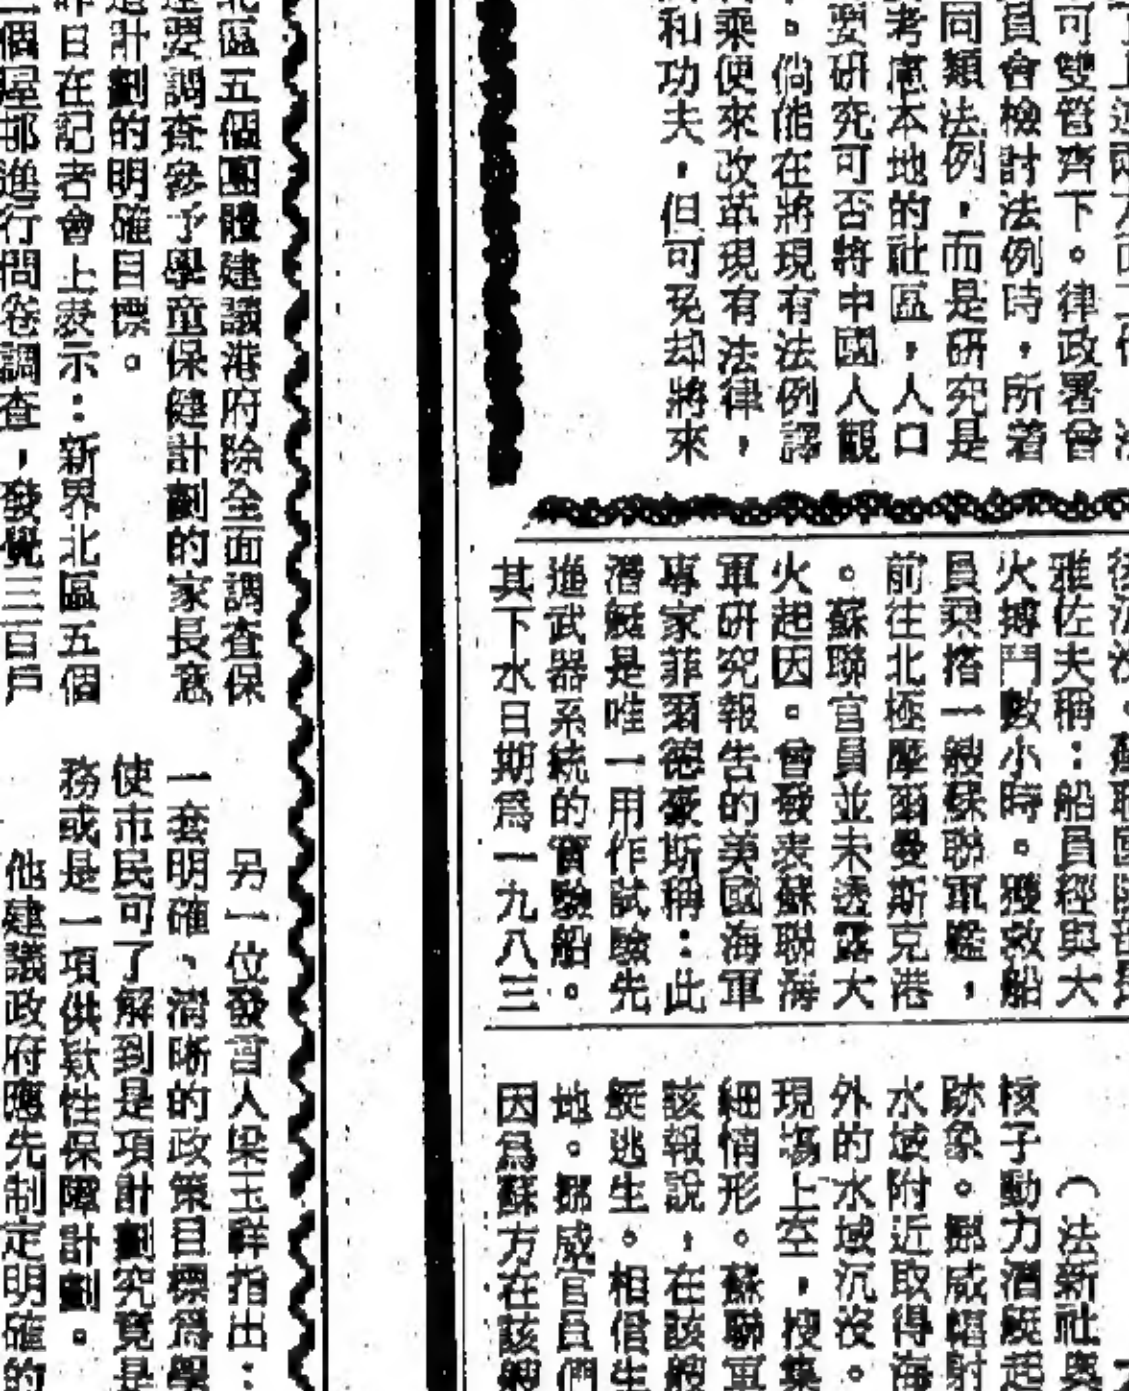 可雙管齊下。律政署曾
員會檢討法例時,所着
同類法例,而是研究是
考慮本地的社區,人口
要研究可否將中國人觀
。倘能在將現有法例認
乘便來改革現有法律,
和功夫,但可免却將來
雅佐夫稱:船員經與大
火搏鬥數小時。獲救船
員乘搭一艘蘇聯軍艦,
前往北極摩爾曼斯克港
。蘇聯官員並未透露大
火起因。曾發表蘇聯海
軍研究報告的美國海軍
專家菲爾德豪斯稱:此
潛艇是唯一用作試驗先
進武器系統的實驗船。
其下水日期爲一九八三
(法新社奧
核子動力潛艇起
跡象。挪威輻射
水域附近取得海
外的水域沉沒。
現場上空,搜集
細情形。蘇聯軍
該報說,在該艘
艇逃生。相信生
地。挪威官員們
因爲蘇方在該艘
北區五個團體建議港府除全面調查保
要調查參予學童保健計劃的家長意
計劃的明確目標。
昨日在記者會上表示:新界北區五個
個屋邨進行問卷調查,發覺三百戶
另一位發言人梁玉群指出:
一套明確、清晰的政策目標爲學
使市民可了解到是項計劃究竟是
務或是一項供款性保障計劃。
他建議政府應先制定明確的